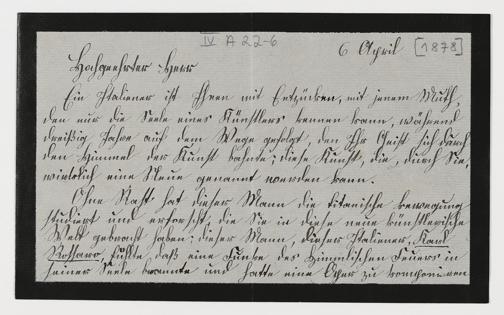 IV A 22-6
6 April [1878]
Hochgeehrter Herr
Ein Italiener ist Ihnen mit Entzücken, mit jenem Muth,
den nur die Seele eines Künstlers kennen kann, während
dreißig Jahre auf dem Wege gefolgt, den Ihr Geist sich durch
den Himmel der Kunst bahnte; diese Kunst, die, durch Sie,
wirklich eine Neue genannt werden kann.
Ohne Rast hat dieser Mann die titanische Bewegung
studiert und erforscht, die Sie in diese neue künstlerische
Welt gebracht haben; dieser Mann, dieser Italiener,
Rossaro, fühlte daß eine Funke des himmlischen Feuers in
seiner Seele brannte und hatte eine Oper zu komponieren